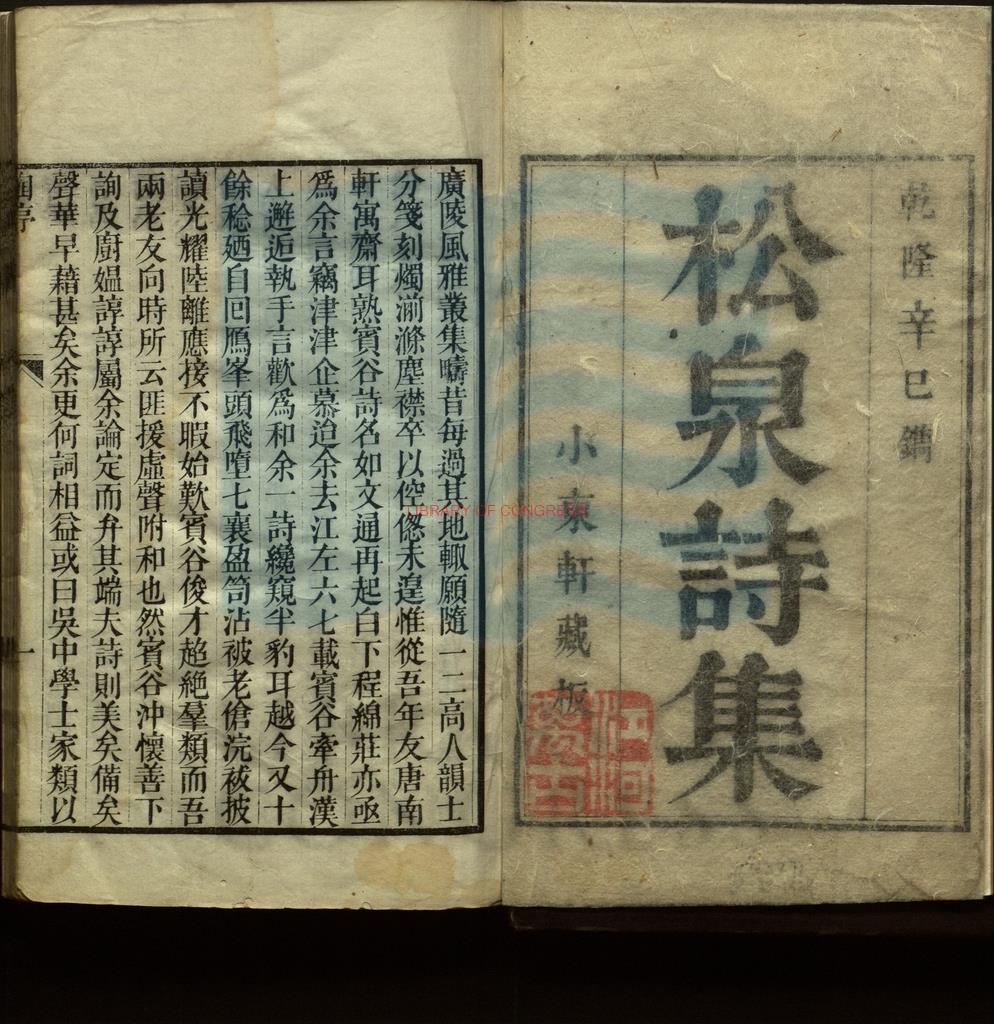 乾隆辛巳鐫
松泉詩集
小東軒藏板
廣陵風雅叢集疇昔每過其地輙願隨一二高人韻士
分箋刻燭湔滌塵襟卒以倥傯未遑惟從吾年友唐南
軒寓齋耳熟賓谷詩名如文通再起白下程綿莊亦亟
爲余言竊津津企慕迨余去江左六七載賓谷牽舟漢
上邂逅執手言歡爲和余一詩纔窺半豹耳越今又十
餘稔廼自回鴈峯頭飛墮七襄盈笥沾被老傖浣祓披
讀光耀陸離應接不暇始歎賓谷俊才超絶羣類而吾
兩老友向時所云匪援虛聲附和也然賓谷沖懷善下
詢及廚媼諄諄屬余論定而弁其端夫詩則美矣備矣
聲華早藉甚矣余更何詞相益或曰吳中學士家類以
一
LIBRARY OF CONGRESS